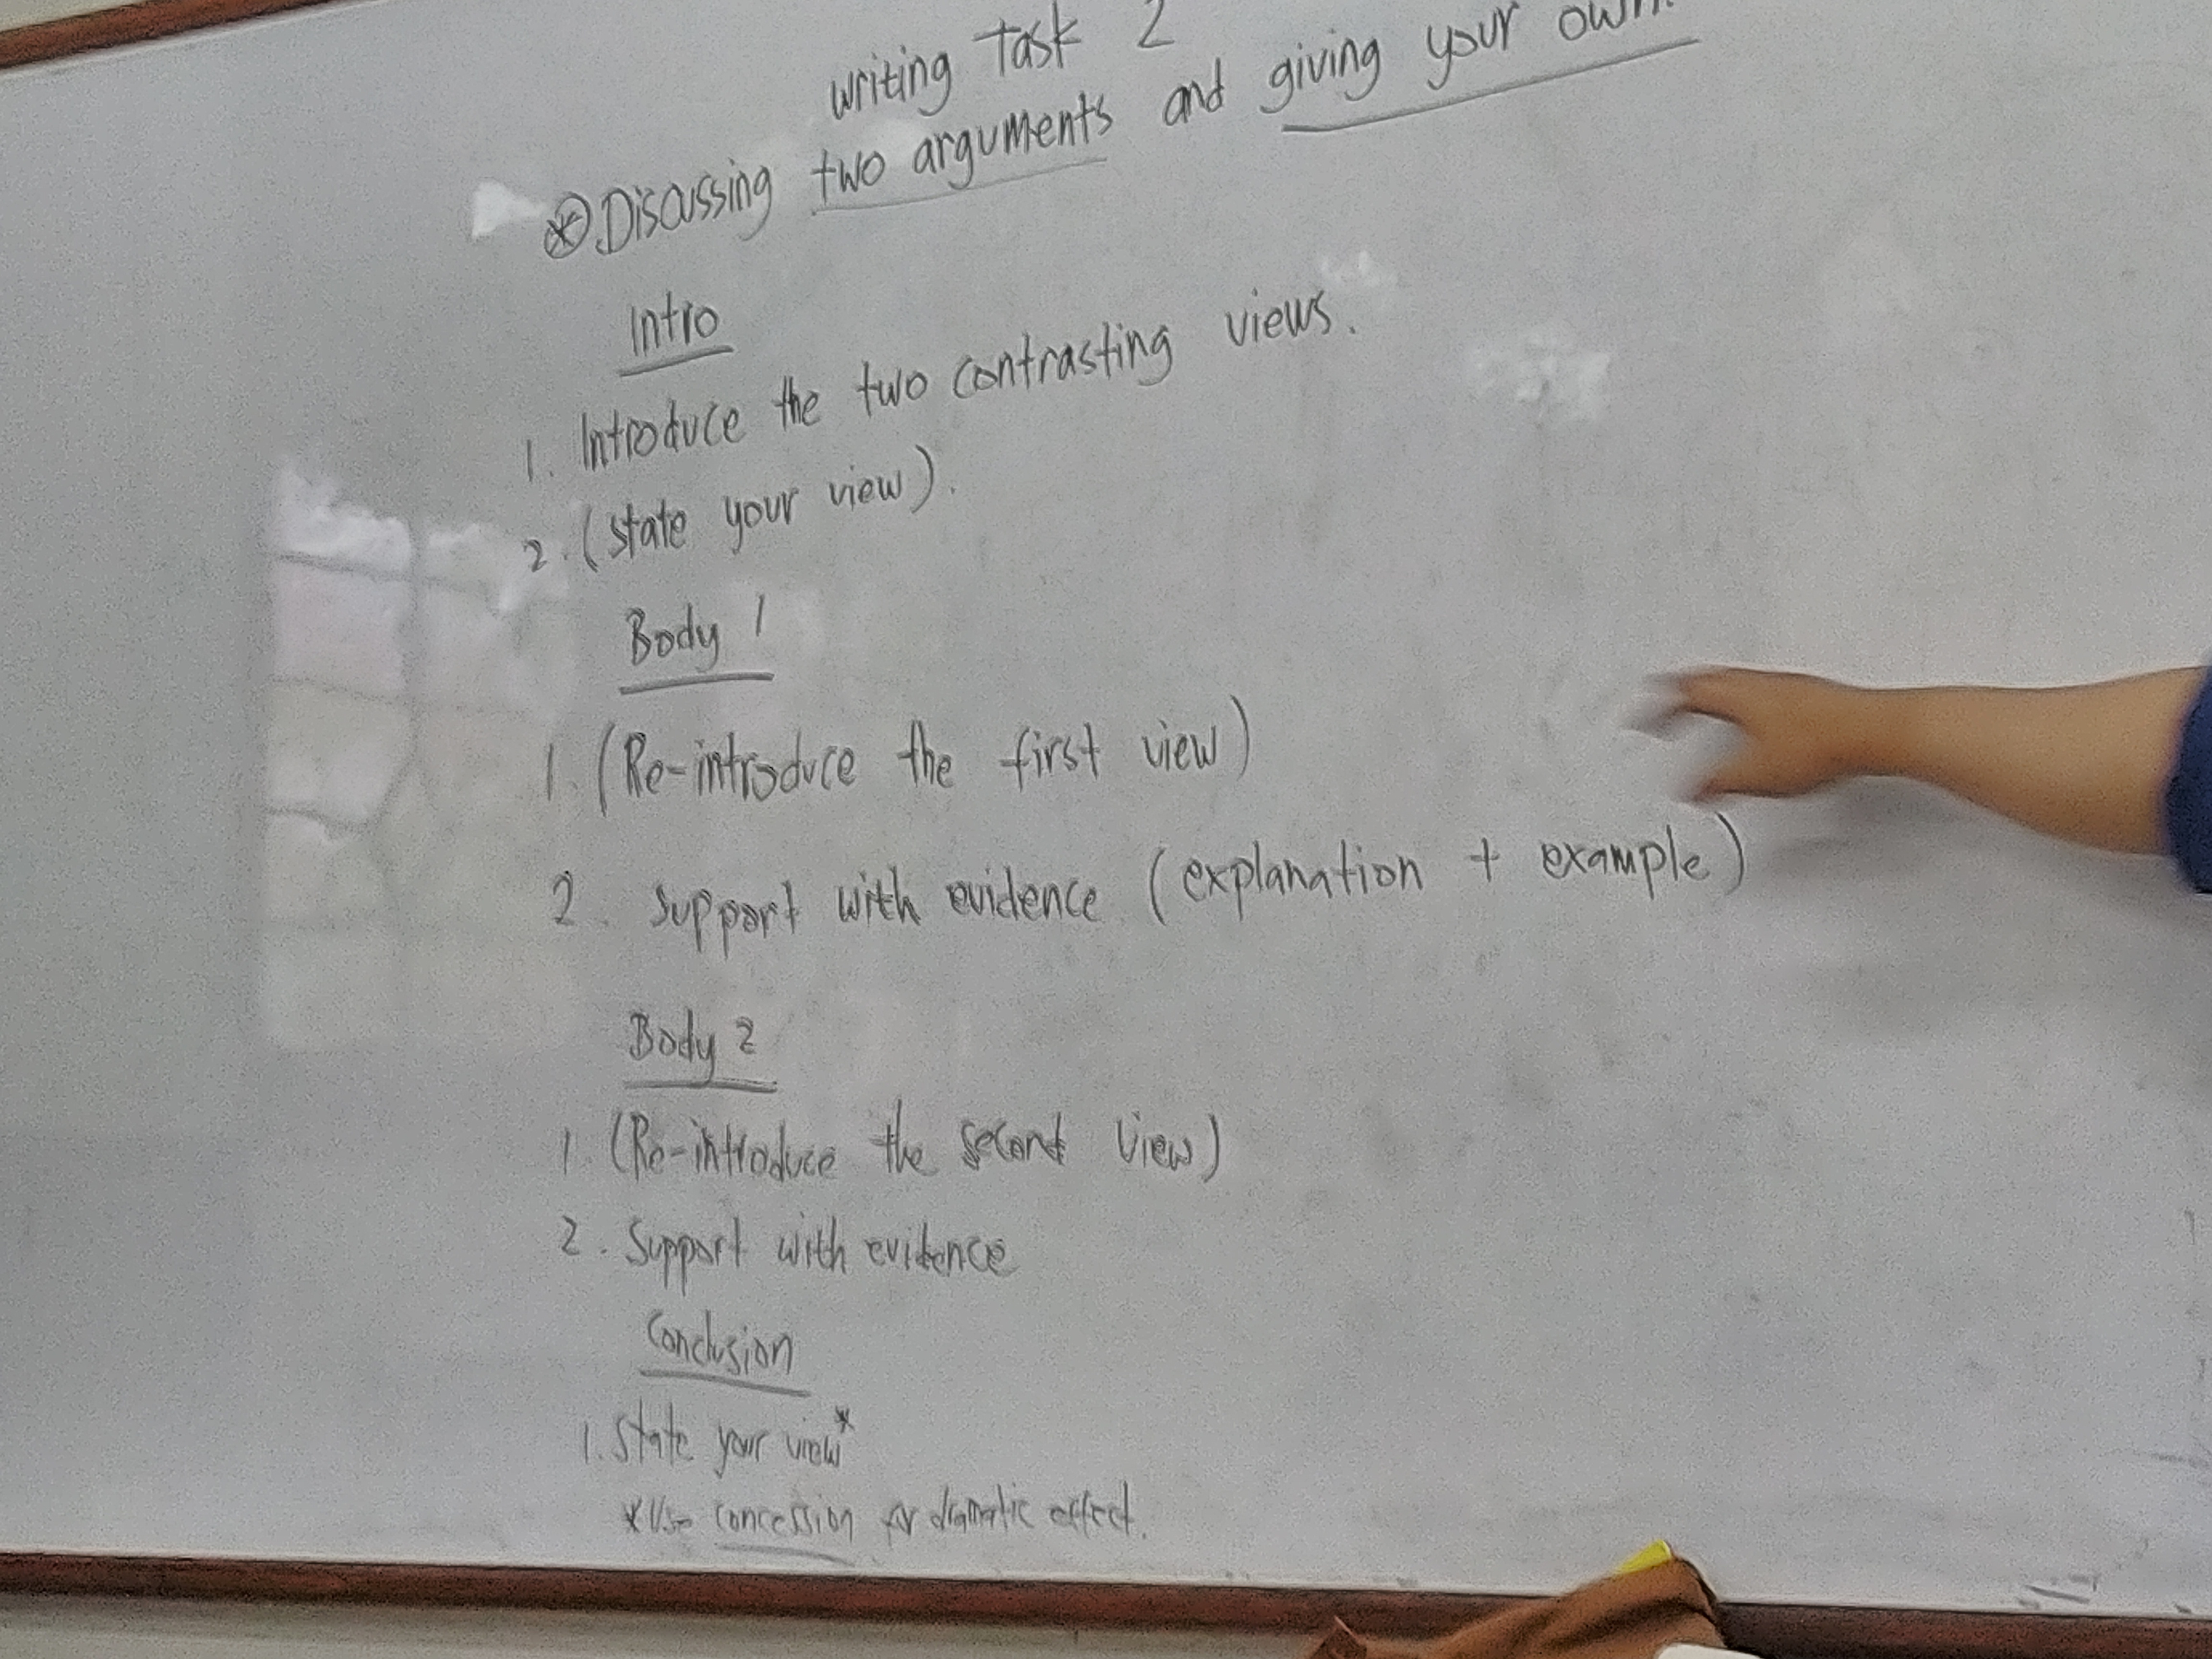 Writing Task 2
⊛ Discussing two arguments and giving your own.
Intro
1. Introduce the two contrasting views.
2. (state your view).
Body 1
1. (Re-introduce the first view)
2. support with evidence (explanation + example)
Body 2
1. (Re-introduce the second view)
2. Support with evidence
Conclusion
1. State your view*
*Use concession for dramatic effect.